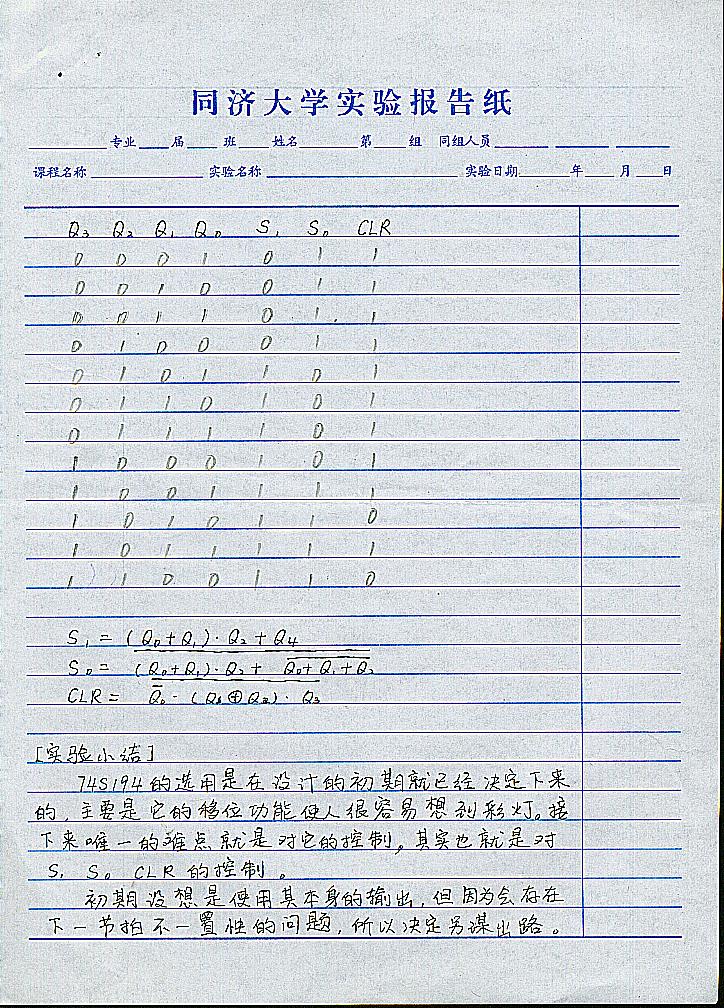 同济大学实验报告纸
专业 届 班 姓名 第 组 同组人员
课程名称 实验名称 实验日期 年 月 日
Q₃ Q₂ Q₁ Q₀ S₁ S₀ CLR
0 0 0 1 0 1 1
0 0 1 0 0 1 1
0 0 1 1 0 1 1
0 1 0 0 0 1 1
0 1 0 1 1 0 1
0 1 1 0 1 0 1
0 1 1 1 1 0 1
1 0 0 0 1 0 1
1 0 0 1 1 1 1
1 0 1 0 1 1 0
1 0 1 1 1 1 1
1 1 0 0 1 1 0
S₁ = (Q₀+Q₁)·Q₂+Q₄
S₀ = (Q₀+Q₁)·Q₂+ Q₀+Q₁+Q₂
CLR = Q̄₀·( ⊕ )·Q₃
[实验小结]
74S194的选用是在设计的初期就已经决定下来
的,主要是它的移位功能使人很容易想到彩灯。接
下来唯一的难点就是对它的控制,其实也就是对
S₁ S₀ CLR 的控制。
初期设想是使用其本身的输出,但因为会存在
下一节拍不一置性的问题,所以决定另谋出路。